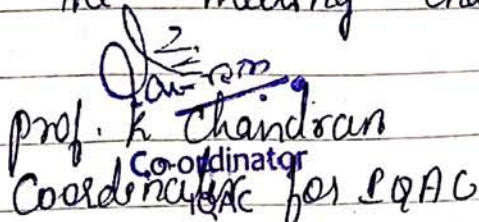 meeting
Prof. K Chandran
Co-ordinator
Coordinator for IQAC
IQAC